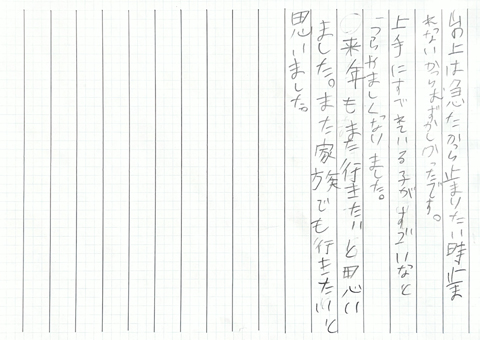 氷上は急だから止まりたい時止ま
れないからむずかしかったです。
上手にすべれている子がすごいなと
うらやましくなりました。
来年もまた行きたいと思い
ました。また家族でも行きたいと
思いました。